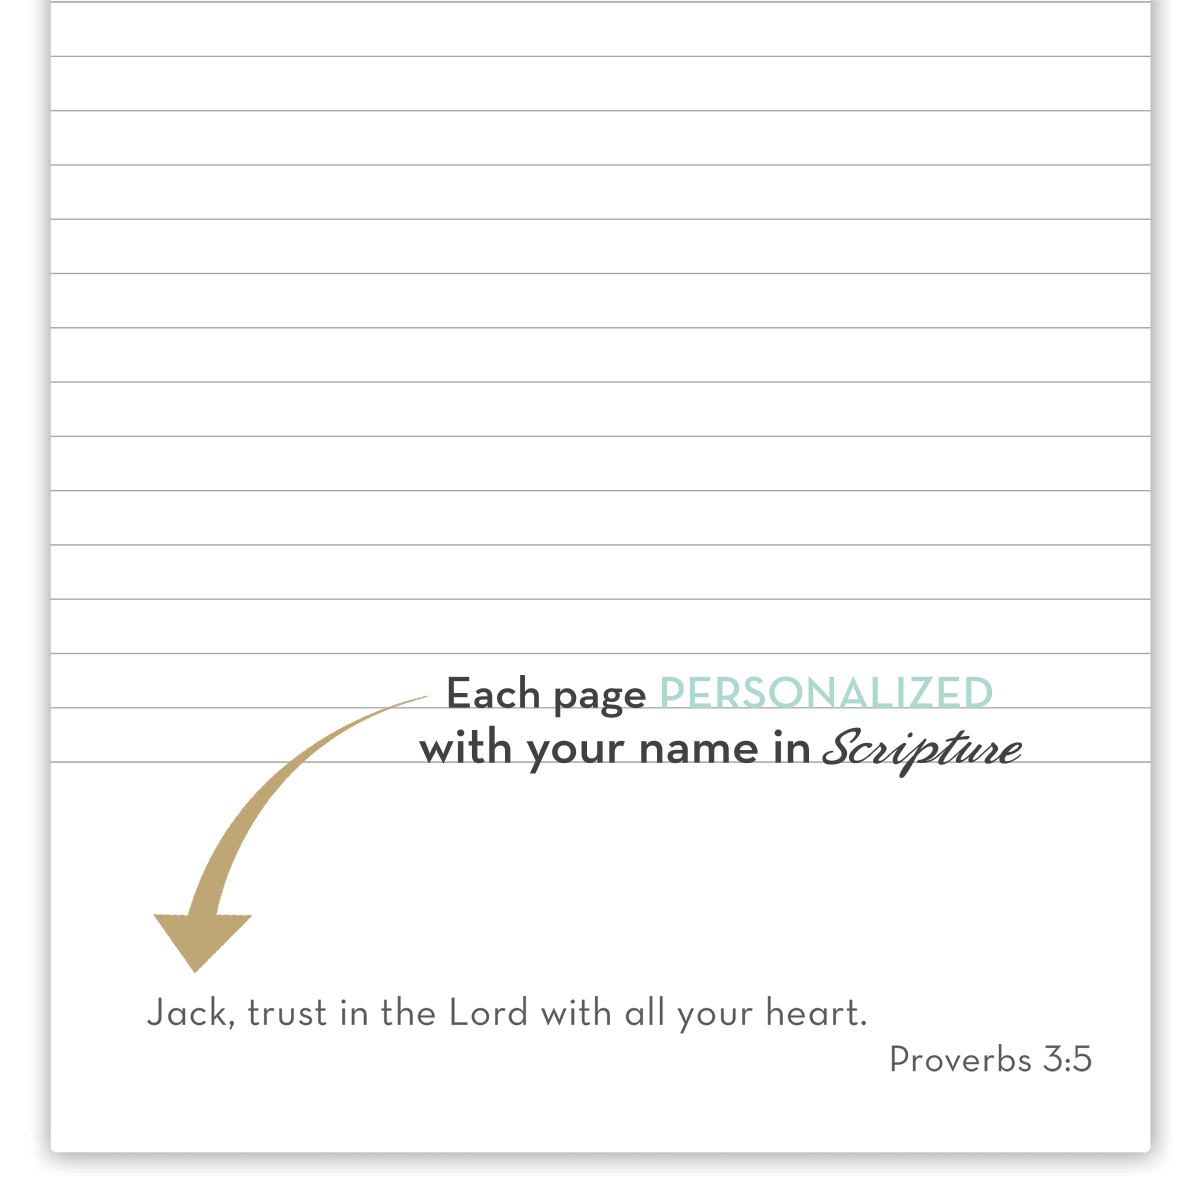 Each page PERSONALIZED
with your name in Scripture
Jack, trust in the Lord with all your heart.
Proverbs 3:5